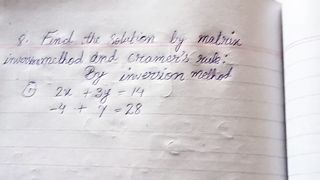 8. Find the solution by matrix
inversion method and cramer's rule:
By inversion method
① 2x + 3y = 14
-4 + y = 28